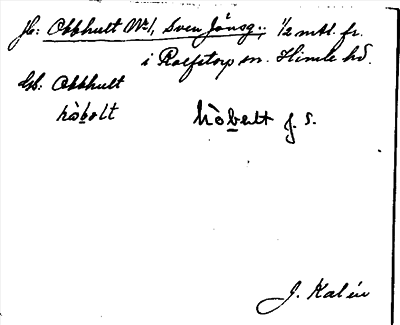 Jb: Obbhult No1, Sven Jönsg:, 1/2 mtl. fr.
i Rolfstorp sn. Himle hd.
Ub. Obbhult
hòbolt hòbelt J. S.
J. Kalén